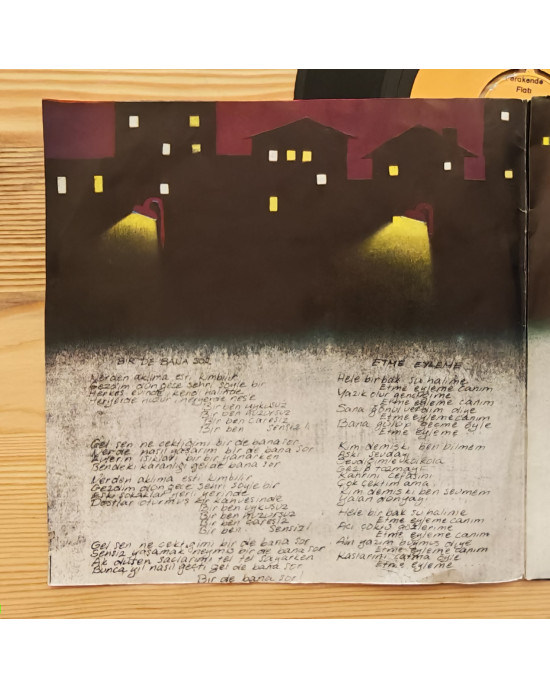 Perakende
Fiatı
BİR DE BANA SOR
Nerden aklıma esti kimbilir
Gezdim gün gece şehri şöyle bir
Herkes evinde kendi halinde
Yerinde neşe
Bir ben uykusuz
Bir ben huzursuz
Bir ben çaresiz
Bir ben sensiz!
Gel sen ne çektiğimi bir de bana sor
Nerde nasıl yaşarım bir de bana sor
Evlerin ışıkları bir bir yanarken
Bendeki karanlığı gel de bana sor
Nerden aklıma esti kimbilir
Gezdim gün gece şehri şöyle bir
Eski sokaklar yerli yerinde
Dostlar oturmuş bir kahvesinde
Bir ben uykusuz
Bir ben huzursuz
Bir ben çaresiz
Bir ben sensiz!
Gel sen ne çektiğimi bir de bana sor
Sensiz yaşamak neymiş bir de bana sor
Ak düşen saçlarımı tel tel sayarken
Bunca yıl nasıl geçti gel de bana sor
Bir de bana sor
ETME EYLEME
Hele bir bak şu halime
Etme eyleme canım
Yazık olur gençliğime
Etme eyleme canım
Sana gönül verdim diye
Etme eyleme canım
Bana gülüp geçme öyle
Etme eyleme
Kim demiş ki ben bilmem
Aşkı sevdayı
Sevdiğimle kolkola
Gezip tozmayı
Kahrını cefasını
Çok çektim ama
Kim demiş ki ben sevmem
Yalan dünyayı
Hele bir bak şu halime
Etme eyleme canım
Acı çöküş gözlerime
Etme eyleme canım
Alın yazım buymuş diye
Etme eyleme canım
Kaşlarını çatma öyle
Etme eyleme